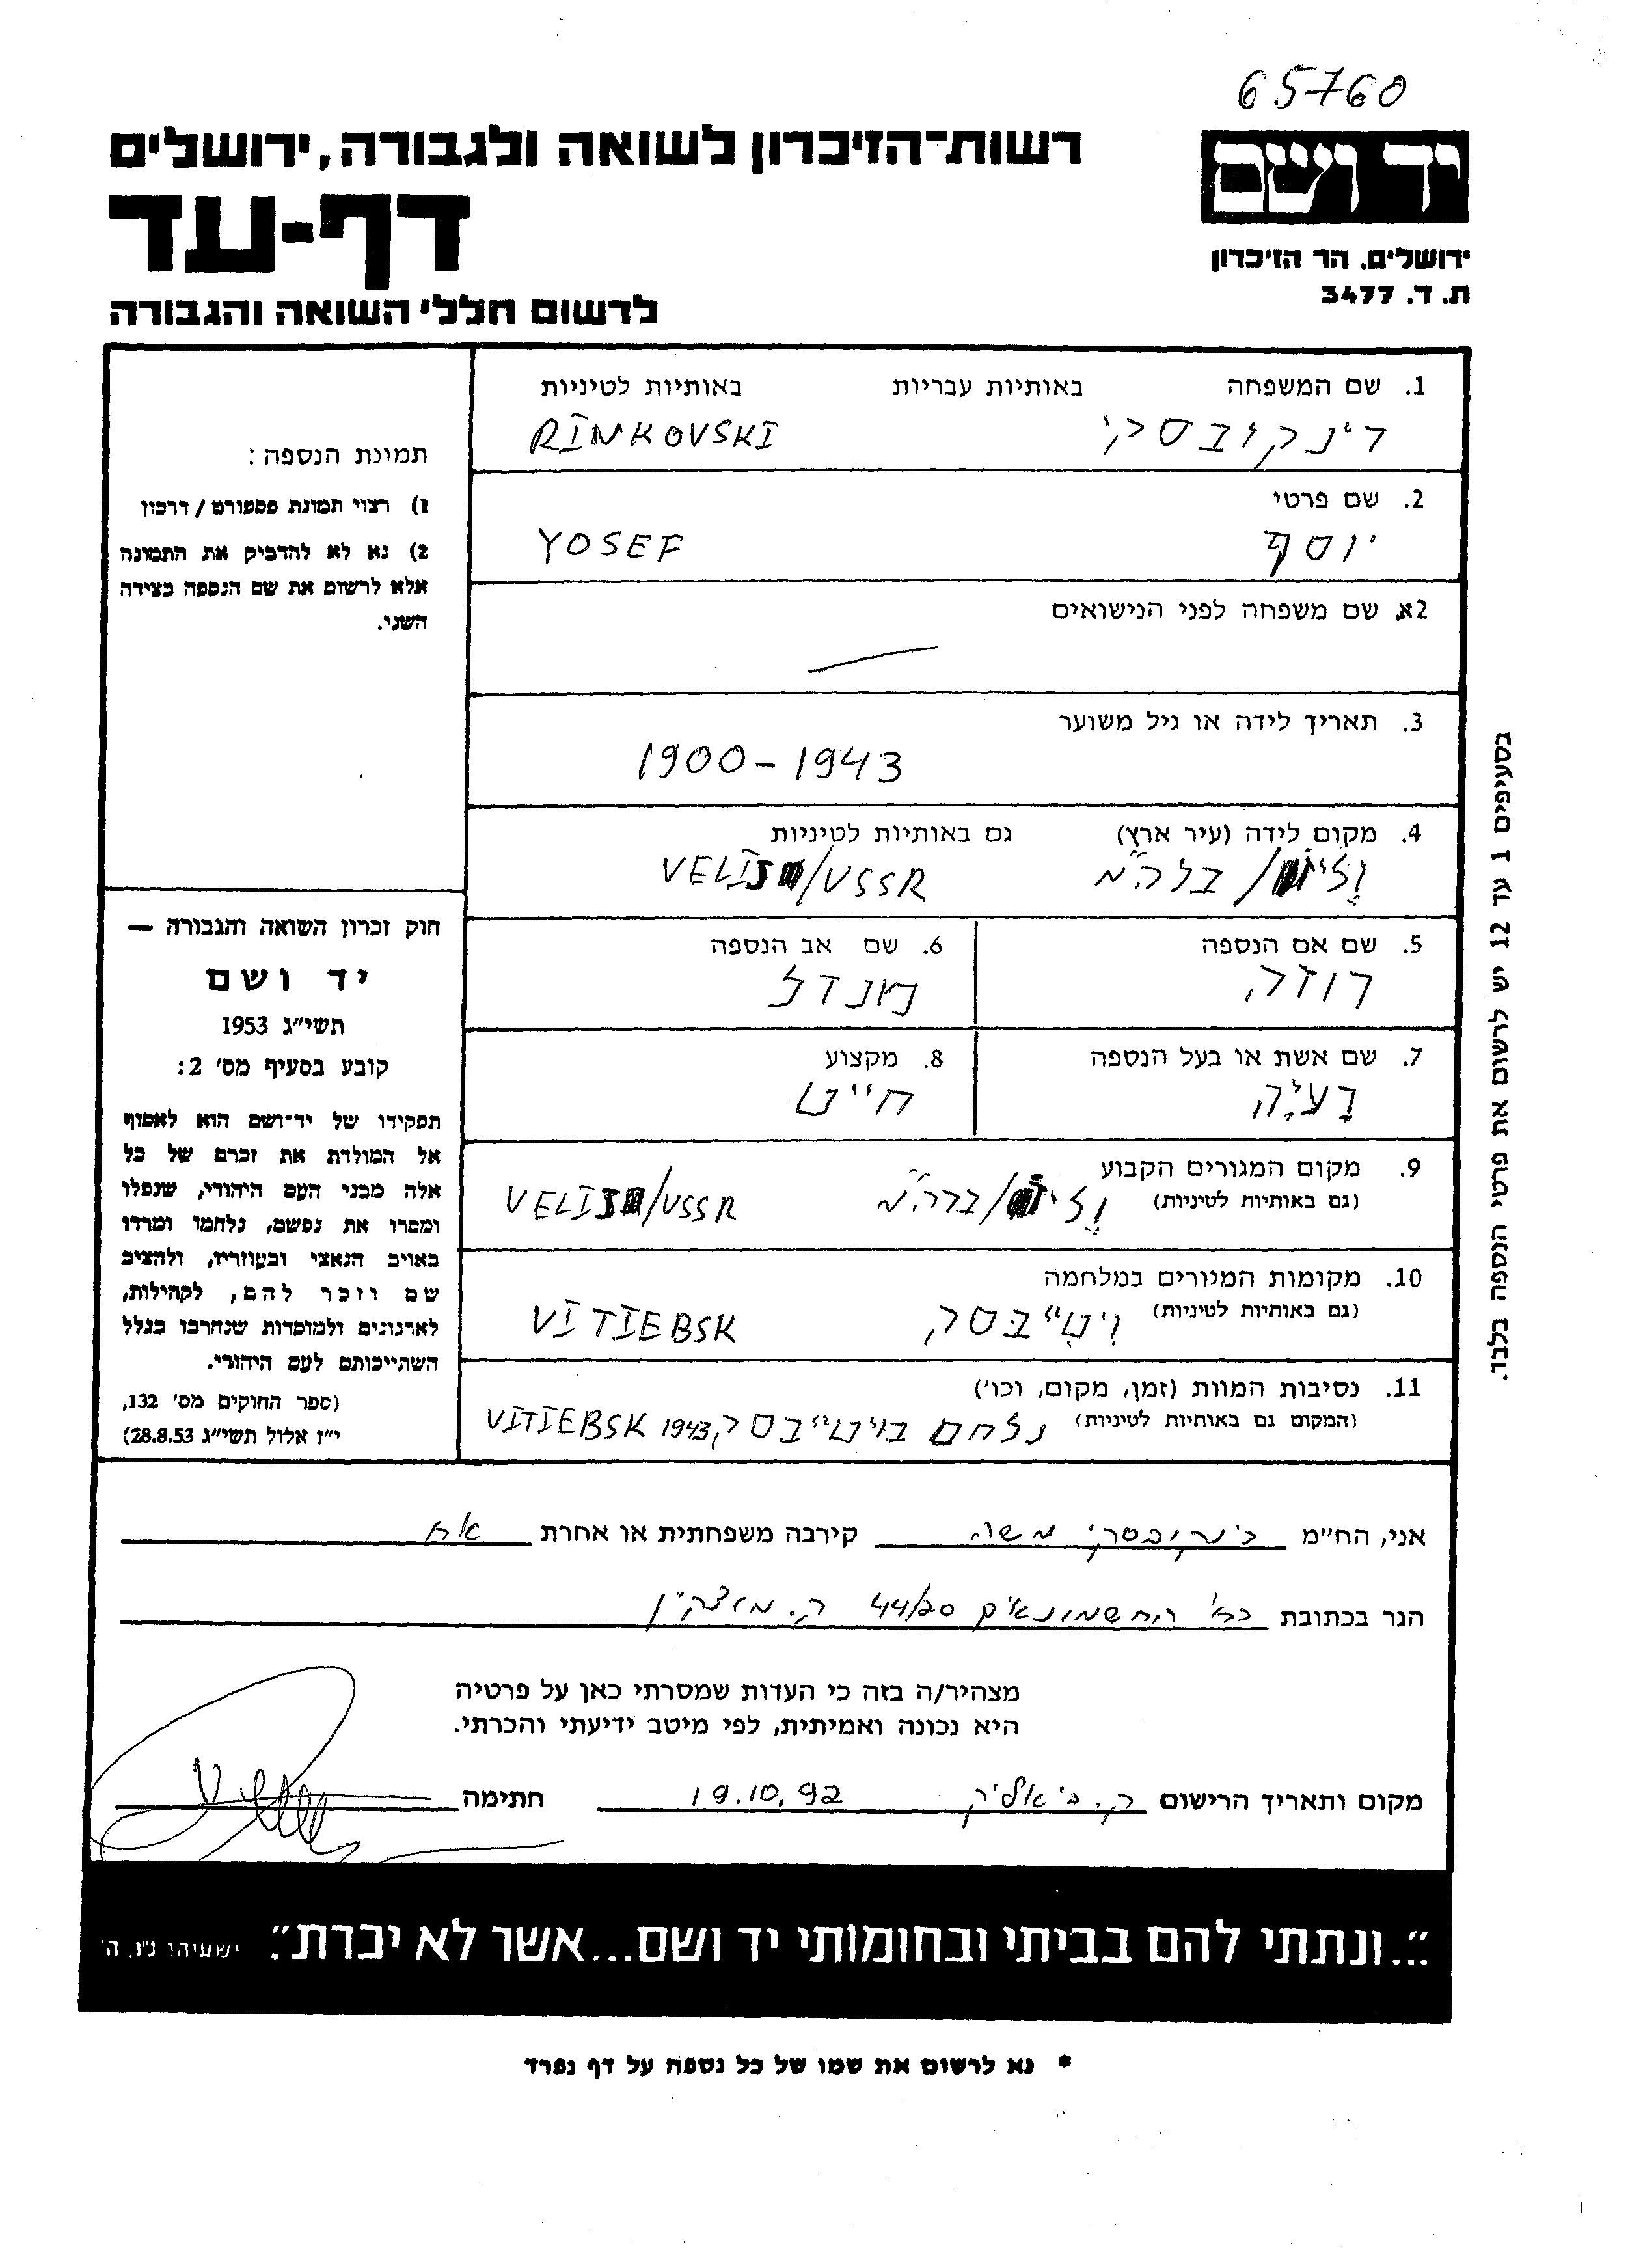 65760
יד ושם
ירושלים. הר הזיכרון
ת. ד. 3477
רשות־הזיכרון לשואה ולגבורה, ירושלים
דף-עד
לרשום חללי השואה והגבורה
1. שם המשפחה באותיות עבריות באותיות לטיניות
רינקובסקי RINKOVSKI
2. שם פרטי
יוסף YOSEF
2א. שם משפחה לפני הנישואים
—
3. תאריך לידה או גיל משוער
1900-1943
4. מקום לידה (עיר ארץ) גם באותיות לטיניות
/ברה"מ /USSR
5. שם אם הנספה
רוזה
6. שם אב הנספה
מנדל
7. שם אשת או בעל הנספה
8. מקצוע
חייט
9. מקום המגורים הקבוע
(גם באותיות לטיניות) /ברה"מ /USSR
10. מקומות המגורים במלחמה
(גם באותיות לטיניות) ויטייבסק VITIEBSK
11. נסיבות המוות (זמן, מקום, וכו')
(המקום גם באותיות לטיניות) נלחם בויטייבסק 1943 VITIEBSK
תמונת הנספה:
1) רצוי תמונת פספורט / דרכון
2) נא לא להדביק את התמונה
אלא לרשום את שם הנספה בצידה
השני.
חוק זכרון השואה והגבורה —
יד ושם
תשי"ג 1953
קובע בסעיף מס' 2:
תפקידו של יד־ושם הוא לאסוף
אל המולדת את זכרם של כל
אלה מבני העם היהודי, שנפלו
ומסרו את נפשם, נלחמו ומרדו
באויב הנאצי ובעוזריו, ולהציב
שם וזכר להם, לקהילות,
לארגונים ולמוסדות שנחרבו בגלל
השתייכותם לעם היהודי.
(ספר החוקים מס' 132,
י"ז אלול תשי"ג 28.8.53)
בסעיפים 1 עד 12 יש לרשום את פרטי הנספה בלבד.
אני, הח"מ רינקובסקי משה קירבה משפחתית או אחרת אח
הגר בכתובת רח' החשמונאים 44/20 ק. מוצקין
מצהיר/ה בזה כי העדות שמסרתי כאן על פרטיה
היא נכונה ואמיתית, לפי מיטב ידיעתי והכרתי.
מקום ותאריך הרישום ק. ביאליק 19.10.92 חתימה
"...ונתתי להם בביתי ובחומותי יד ושם...אשר לא יכרת". ישעיהו נ"ו, ה'
* נא לרשום את שמו של כל נספה על דף נפרד